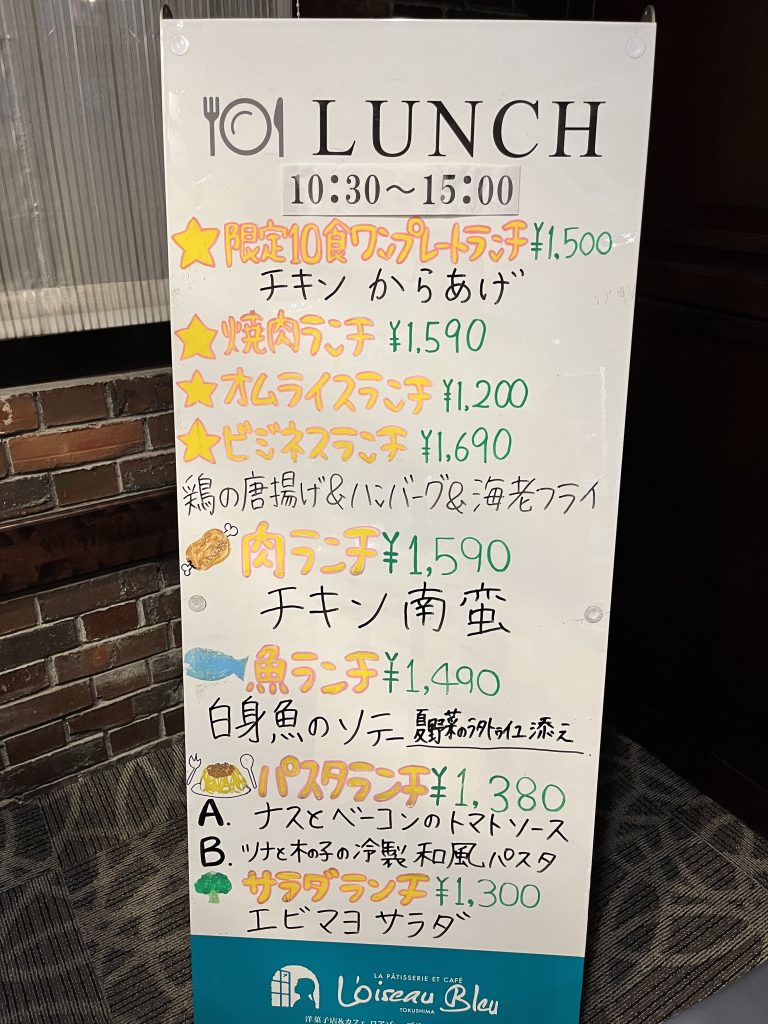 LUNCH
10:30～15:00
限定10食ワンプレートランチ¥1,500
チキン からあげ
焼肉ランチ ¥1,590
オムライスランチ ¥1,200
ビジネスランチ ¥1,690
鶏の唐揚げ&ハンバーグ&海老フライ
肉ランチ¥1,590
チキン南蛮
魚ランチ¥1,490
白身魚のソテー 夏野菜のラタトゥイユ添え
パスタランチ¥1,380
A. ナスとベーコンのトマトソース
B. ツナと木の子の冷製和風パスタ
サラダランチ¥1,300
エビマヨサラダ
LA PÂTISSERIE ET CAFÉ
L'oiseau Bleu
TOKUSHIMA
洋菓子店&カフェ